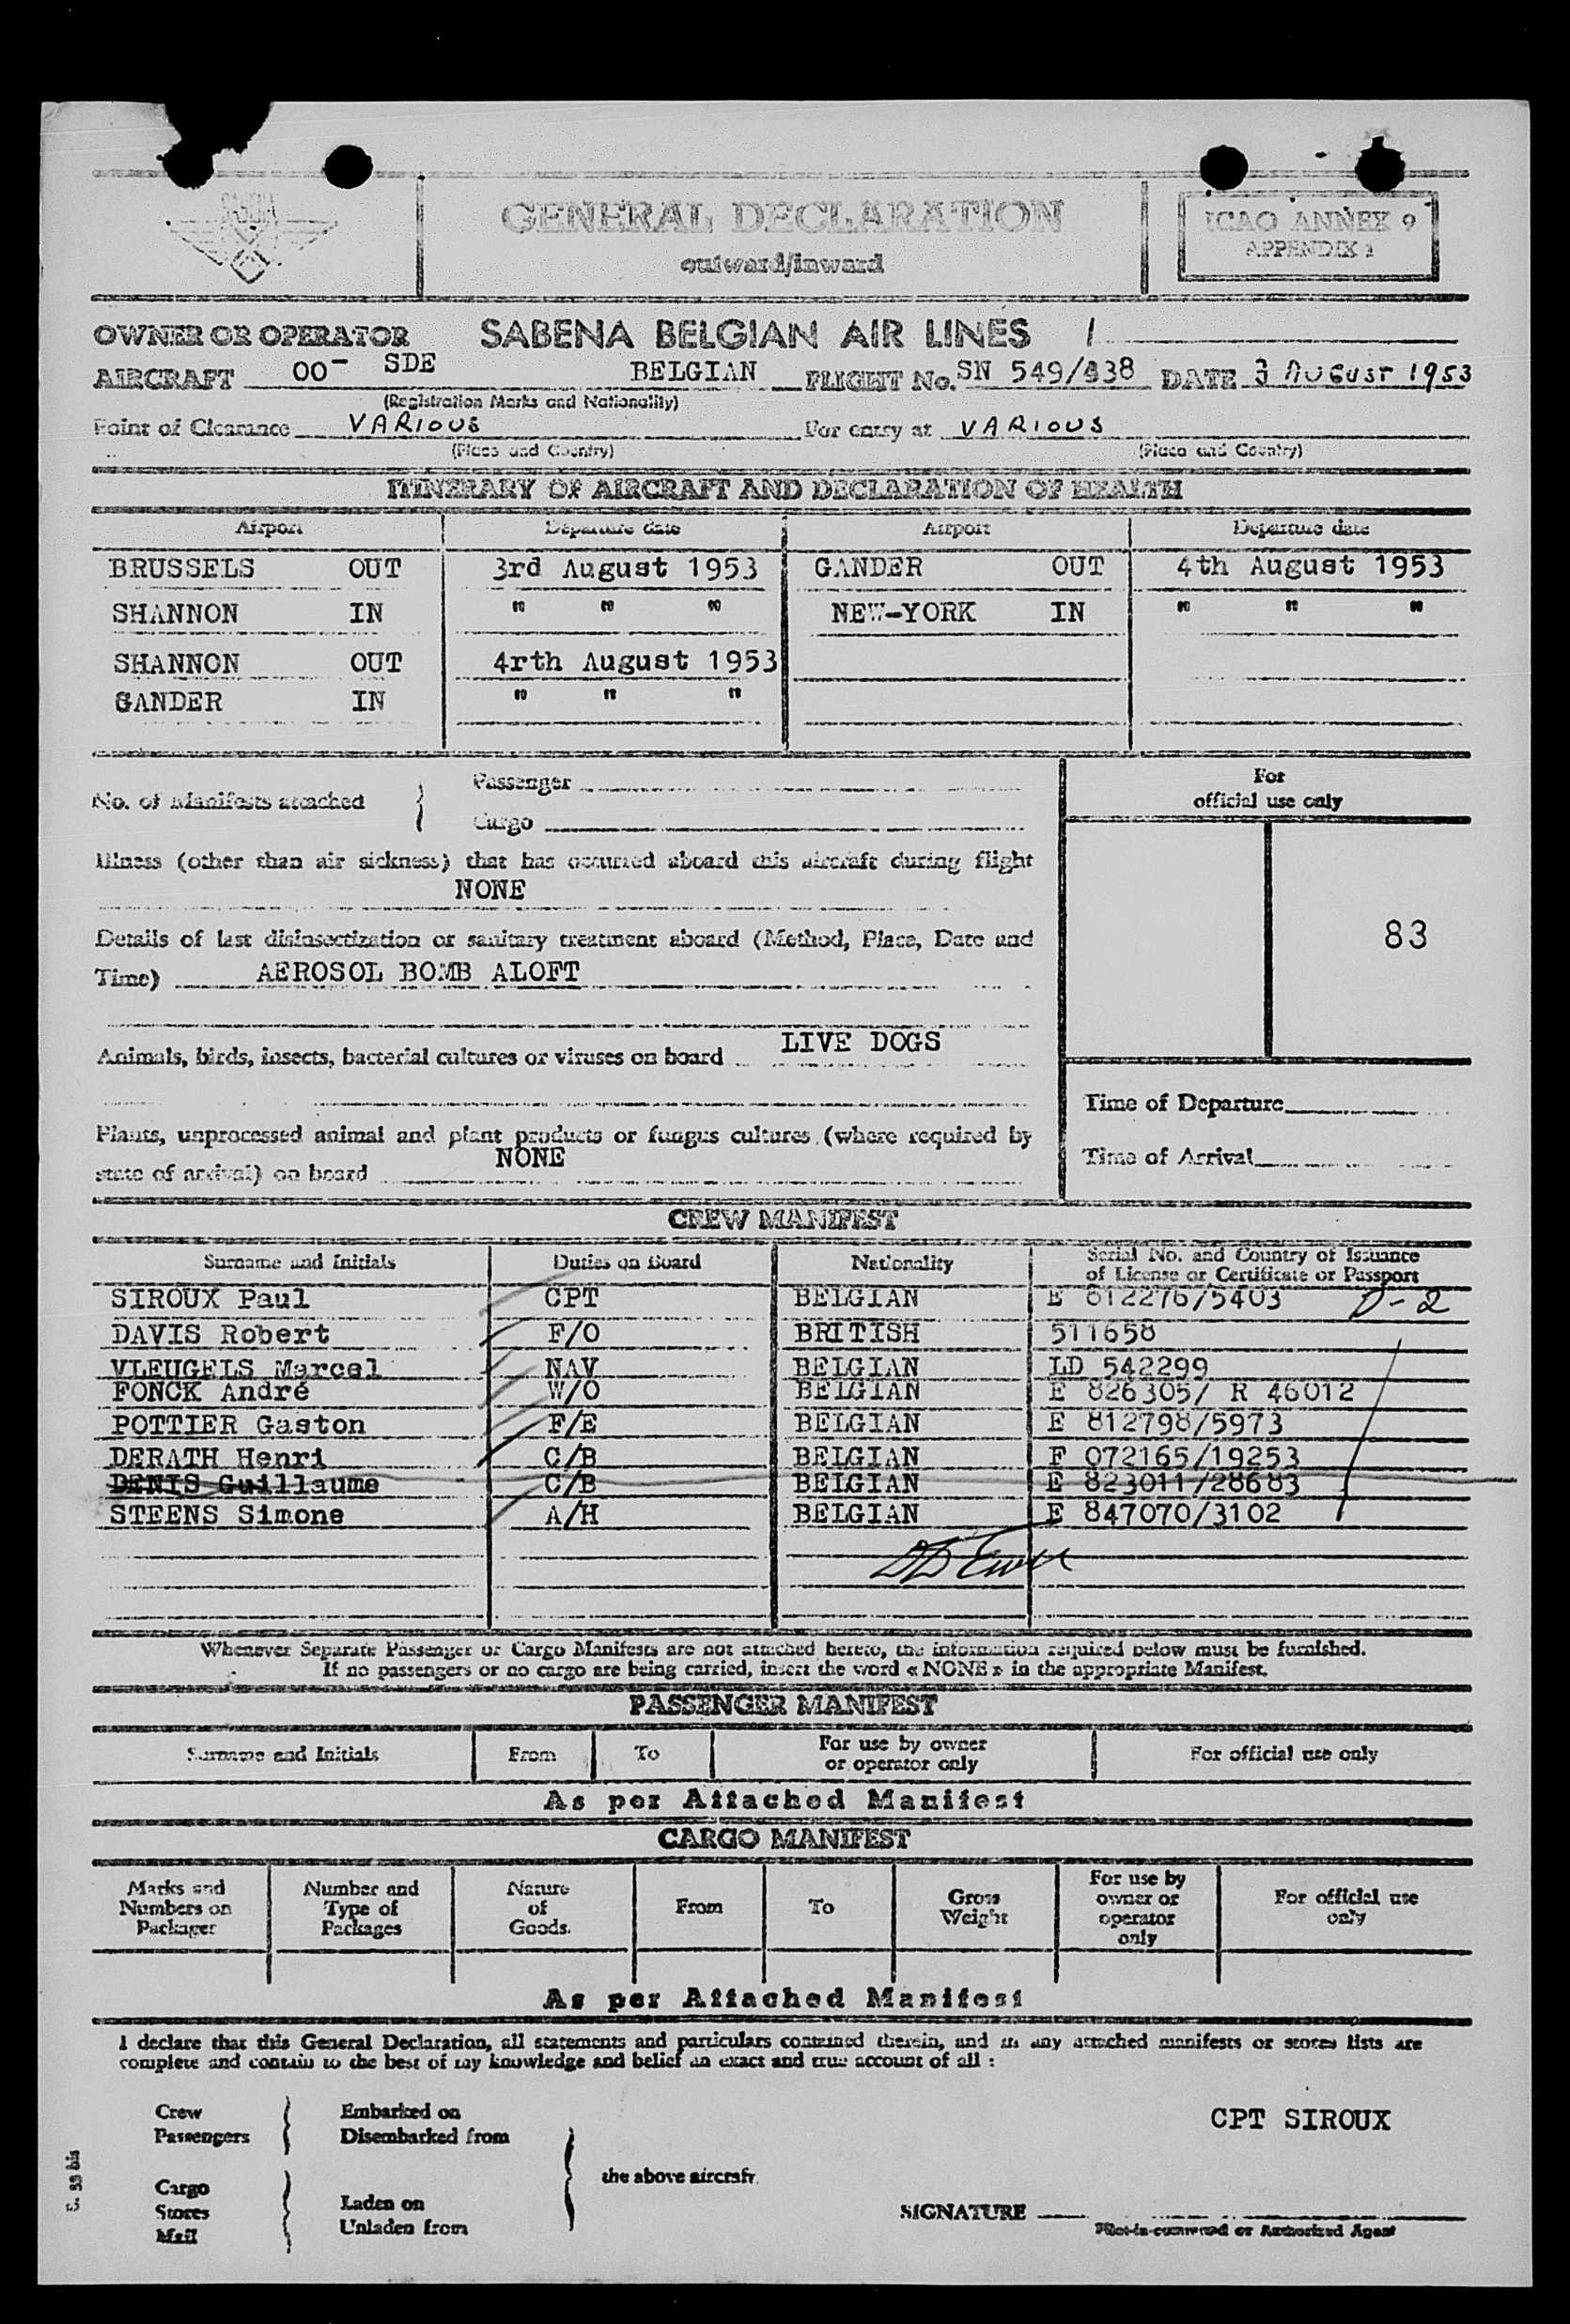 SABENA
GENERAL DECLARATION
outward/inward
ICAO ANNEX 9
APPENDIX 1
OWNER OR OPERATOR SABENA BELGIAN AIR LINES 1
AIRCRAFT OO- SDE BELGIAN FLIGHT No. SN 549/838 DATE 3 AUGUST 1953
(Registration Marks and Nationality)
Point of Clearance VARIOUS For entry at VARIOUS
(Place and Country) (Place and Country)
ITINERARY OF AIRCRAFT AND DECLARATION OF HEALTH
Airport Departure date Airport Departure date
BRUSSELS OUT 3rd August 1953 GANDER OUT 4th August 1953
SHANNON IN " " " NEW-YORK IN " " "
SHANNON OUT 4rth August 1953
GANDER IN " " "
No. of Manifests attached { Passenger
Cargo
For
official use only
Illness (other than air sickness) that has occurred aboard this aircraft during flight
NONE
Details of last disinsectization or sanitary treatment aboard (Method, Place, Date and
Time) AEROSOL BOMB ALOFT
83
Animals, birds, insects, bacterial cultures or viruses on board LIVE DOGS
Time of Departure
Plants, unprocessed animal and plant products or fungus cultures (where required by
state of arrival) on board NONE
Time of Arrival
CREW MANIFEST
Surname and Initials Duties on Board Nationality Serial No. and Country of Issuance
of License or Certificate or Passport
SIROUX Paul CPT BELGIAN E 612276/5403 D-2
DAVIS Robert F/O BRITISH 511658
VLEUGELS Marcel NAV BELGIAN LD 542299
FONCK André W/O BELGIAN E 826305/ R 46012
POTTIER Gaston F/E BELGIAN E 812798/5973
DERATH Henri C/B BELGIAN F 072165/19253
DENIS Guillaume C/B BELGIAN E 823011/28683
STEENS Simone A/H BELGIAN E 847070/3102
Whenever Separate Passenger or Cargo Manifests are not attached hereto, the information required below must be furnished.
If no passengers or no cargo are being carried, insert the word « NONE » in the appropriate Manifest.
PASSENGER MANIFEST
Surname and Initials From To For use by owner
or operator only For official use only
As per Attached Manifest
CARGO MANIFEST
Marks and
Numbers on
Packages
Number and
Type of
Packages
Nature
of
Goods.
From
To
Gross
Weight
For use by
owner or
operator
only
For official use
only
As per Attached Manifest
I declare that this General Declaration, all statements and particulars contained therein, and in any attached manifests or stores lists are
complete and contain to the best of my knowledge and belief an exact and true account of all :
Crew Embarked on
Passengers Disembarked from
CPT SIROUX
the above aircraft.
Cargo
Stores Laden on
Mail Unladen from
SIGNATURE
Pilot-in-command or Authorized Agent
C. 33 bis